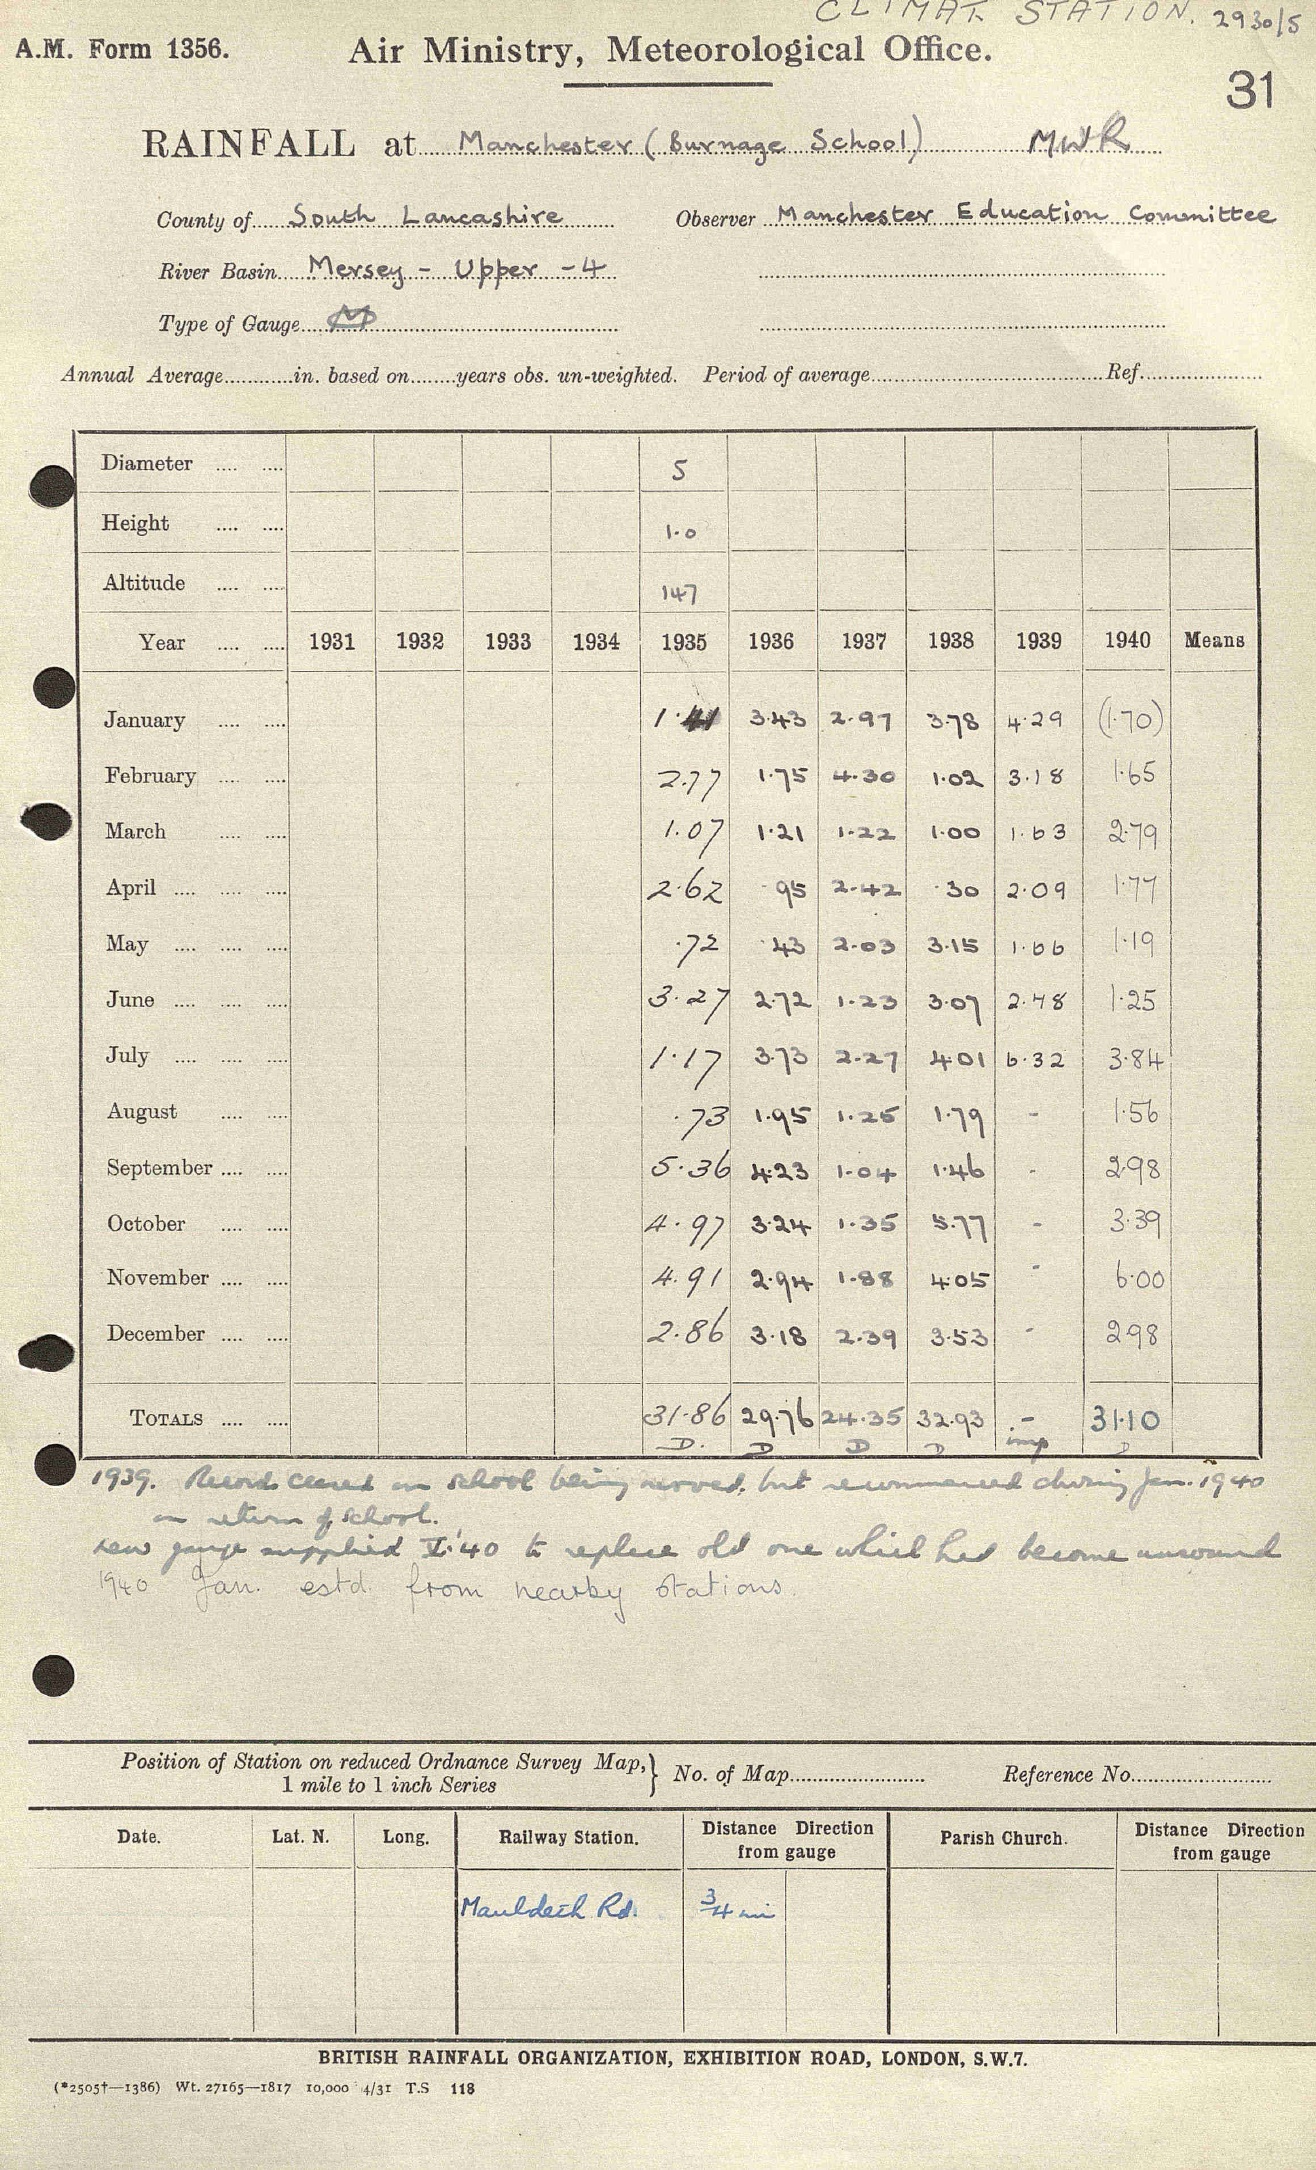 CLIMAT STATION. 2930/5
A.M. Form 1356. Air Ministry, Meteorological Office.
31
RAINFALL at Manchester (Burnage School) MWR
County of South Lancashire Observer Manchester Education Committee
River Basin Mersey - Upper - 4
Type of Gauge M
Annual Average............in. based on........years obs. un-weighted. Period of average.............Ref.............
Diameter .... .... 5
Height .... .... 1.0
Altitude .... .... 147
Year .... .... 1931 1932 1933 1934 1935 1936 1937 1938 1939 1940 Means
January .... .... 1.41 3.43 2.97 3.78 4.29 (1.70)
February .... .... 2.77 1.75 4.30 1.02 3.18 1.65
March .... .... 1.07 1.21 1.22 1.00 1.63 2.79
April .... .... .... 2.62 .95 2.42 .30 2.09 1.77
May .... .... .... .72 .43 2.03 3.15 1.66 1.19
June .... .... .... 3.27 2.72 1.23 3.07 2.48 1.25
July .... .... .... 1.17 3.73 2.27 4.01 6.32 3.84
August .... .... .73 1.95 1.25 1.79 - 1.56
September .... .... 5.36 4.23 1.04 1.46 - 2.98
October .... .... 4.97 3.24 1.35 5.77 - 3.39
November .... .... 4.91 2.94 1.88 4.05 - 6.00
December .... .... 2.86 3.18 2.39 3.53 - 2.98
TOTALS .... .... 31.86 29.76 24.35 32.93 - 31.10
D. D D D imp D
1939. Record ceased on school being moved, but recommenced during Jan. 1940
on return of school.
New gauge supplied V.'40 to replace old one which had become unsound
1940 Jan. estd. from nearby stations.
Position of Station on reduced Ordnance Survey Map, } No. of Map............ Reference No............
1 mile to 1 inch Series
Date. Lat. N. Long. Railway Station. Distance Direction from gauge Parish Church. Distance Direction from gauge
Mauldeth Rd. 3/4 mi
BRITISH RAINFALL ORGANIZATION, EXHIBITION ROAD, LONDON, S.W.7.
(*2505†—1386) Wt. 27165—1817 10,000 4/31 T.S 118